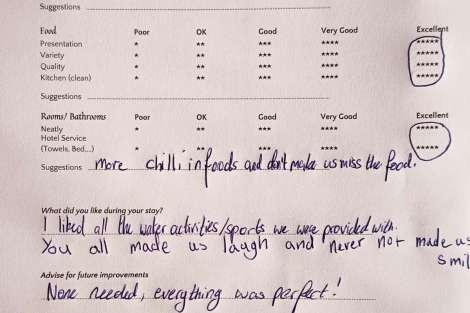 Suggestions
Food Poor OK Good Very Good Excellent
Presentation * ** *** **** *****
Variety * ** *** **** *****
Quality * ** *** **** *****
Kitchen (clean) * ** *** **** *****
Suggestions
Rooms/ Bathrooms Poor OK Good Very Good Excellent
Neatly * ** *** **** *****
Hotel Service
(Towels, Bed...) * ** *** **** *****
Suggestions more chilli in foods and don't make us miss the food.
What did you like during your stay?
I liked all the water activities/sports we were provided with.
You all made us laugh and never not made us
smil
Advise for future improvements
None needed, everything was perfect!